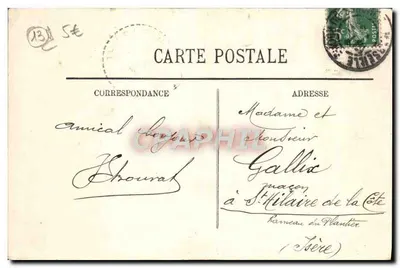 13 5€
CARTE POSTALE
CORRESPONDANCE
ADRESSE
Amical bonjour
Madame et
Monsieur
Gallix
maçon
à St Hilaire de la Côte
Hameau du
(Isère)
CPAPHIL